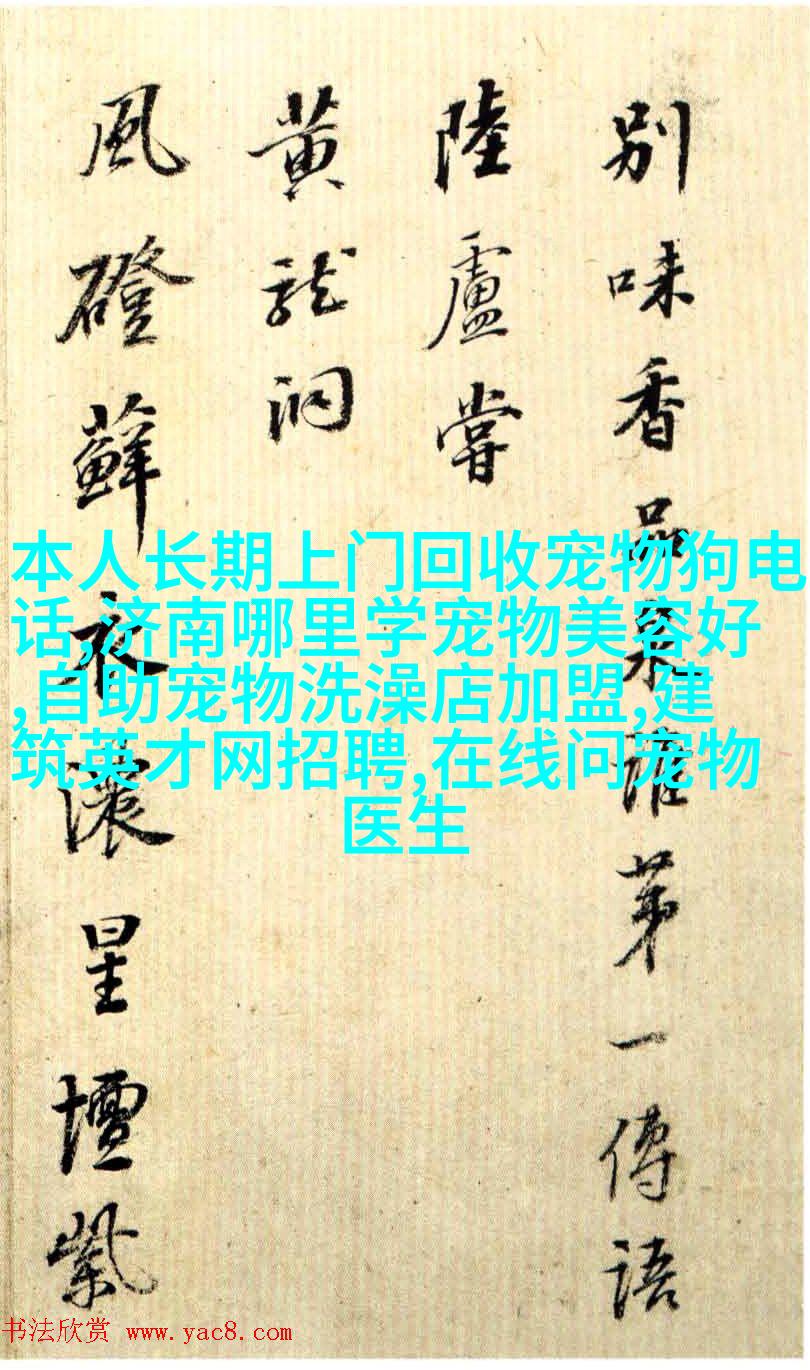 別味香品誰第一傳語
陸盧嘗
黄龍洞
風磴蘚衣濃星壇紫
本人长期上门回收宠物狗电
话,济南哪里学宠物美容好
,自助宠物洗澡店加盟,建
筑英才网招聘,在线问宠物
医生
书法欣赏 www.yac8.com